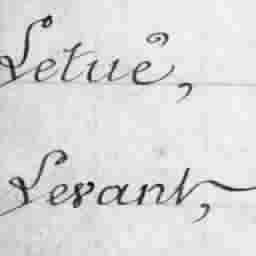 Letuê,
Levant,